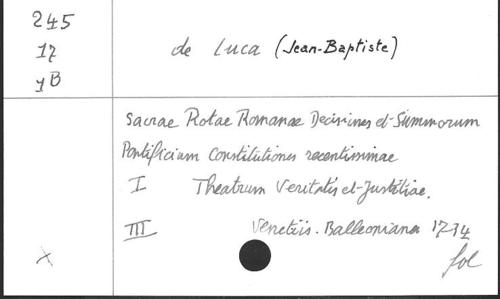 245
17
yB
de Luca (Jean-Baptiste)
Sacrae Rotae Romanae Decisiones et Summorum
Pontificium Constitutiones recentissimae
I Theatrum Veritatis et Justitiae.
III Venetiis. Balleoniana 1734
X fol